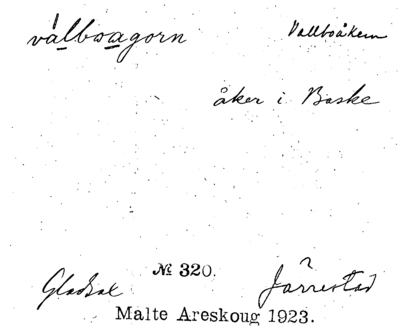 válbsagorn Vallboåkern
åker i Baske
№ 320.
Gladsax Järrestad
Malte Areskoug 1923.